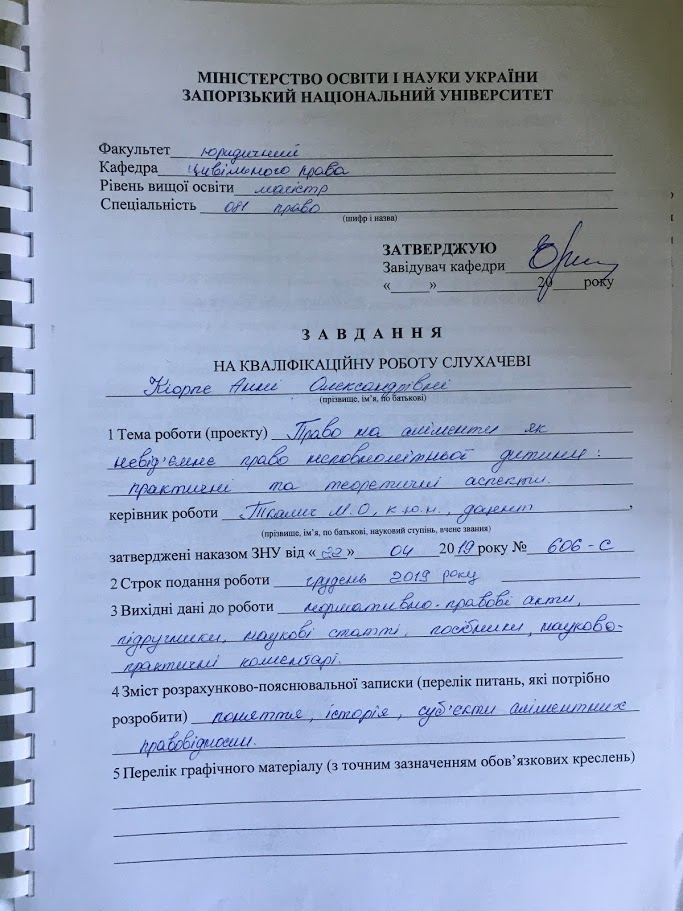 МІНІСТЕРСТВО ОСВІТИ І НАУКИ УКРАЇНИ
ЗАПОРІЗЬКИЙ НАЦІОНАЛЬНИЙ УНІВЕРСИТЕТ
Факультет юридичний
Кафедра цивільного права
Рівень вищої освіти магістр
Спеціальність 081 право
(шифр і назва)
ЗАТВЕРДЖУЮ
Завідувач кафедри
«_____»_____________20____року
З А В Д А Н Н Я
НА КВАЛІФІКАЦІЙНУ РОБОТУ СЛУХАЧЕВІ
Кіорпе Анні Олександрівні
(прізвище, ім’я, по батькові)
1 Тема роботи (проекту) Право на аліменти як
невід'ємне право неповнолітньої дитини:
практичні та теоретичні аспекти.
керівник роботи Ткалич М.О, к.ю.н., доцент,
(прізвище, ім’я, по батькові, науковий ступінь, вчене звання)
затверджені наказом ЗНУ від «22» 04 2019 року № 606-с
2 Строк подання роботи грудень 2019 року
3 Вихідні дані до роботи нормативно-правові акти,
підручники, наукові статті, посібники, науково-
практичні коментарі.
4 Зміст розрахунково-пояснювальної записки (перелік питань, які потрібно
розробити) поняття, історія, суб'єкти аліментних
правовідносин.
5 Перелік графічного матеріалу (з точним зазначенням обов’язкових креслень)